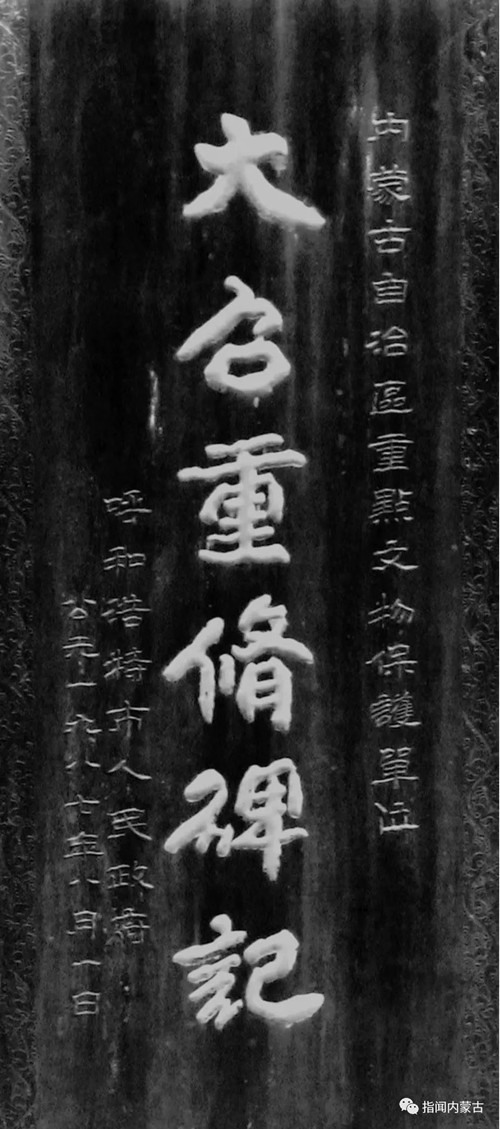 内蒙古自治區重點文物保護單位
大召重脩碑記
呼和浩特市人民政府
公元一九八七年八月一日
指闻内蒙古